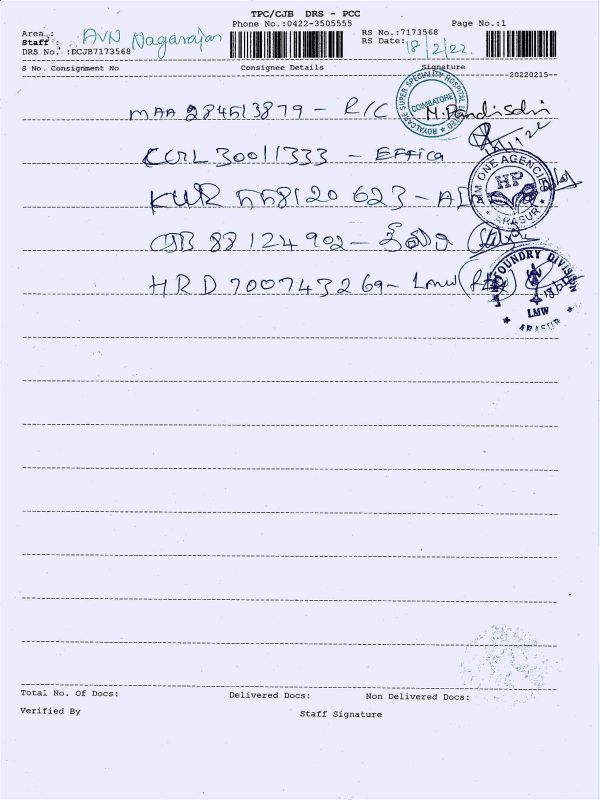 TPC/CJB DRS - PCC
Phone No.:0422-3505555 Page No.:1
Area : RS No.:7173568
Staff : AVN Nagarajan RS Date: 18/2/22.
DRS No. :DCJB7173568
S No. Consignment No Consignee Details Signature
20220215
MAA 284513879 - R/C
ROYALCARE SUPER SPECIALITY HOSPITAL LIMITED COIMBATORE
30011333 - Effica
KUR 558120623 -
ONE AGENCIES HP ARASUR
88124902 -
HRD 700743269 - Lmw
FOUNDRY DIVISION LMW ARASUR
Total No. Of Docs: Delivered Docs: Non Delivered Docs:
Verified By Staff Signature